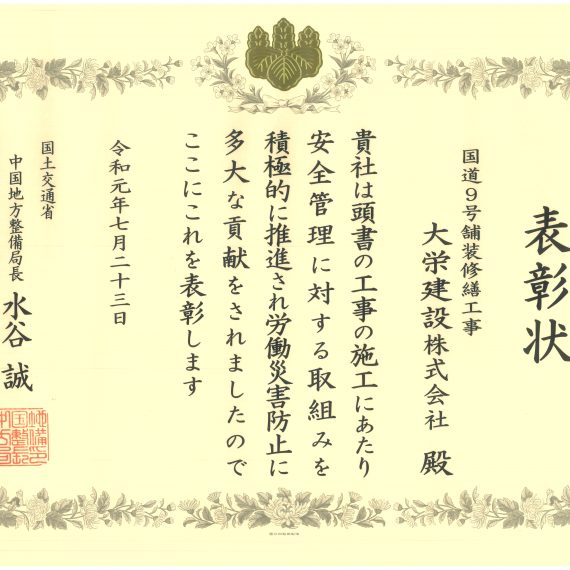 表彰状
国道9号舗装修繕工事
大栄建設株式会社 殿
貴社は頭書の工事の施工にあたり
安全管理に対する取組みを
積極的に推進され労働災害防止に
多大な貢献をされましたので
ここにこれを表彰します
令和元年七月二十三日
国土交通省
中国地方整備局長 水谷 誠